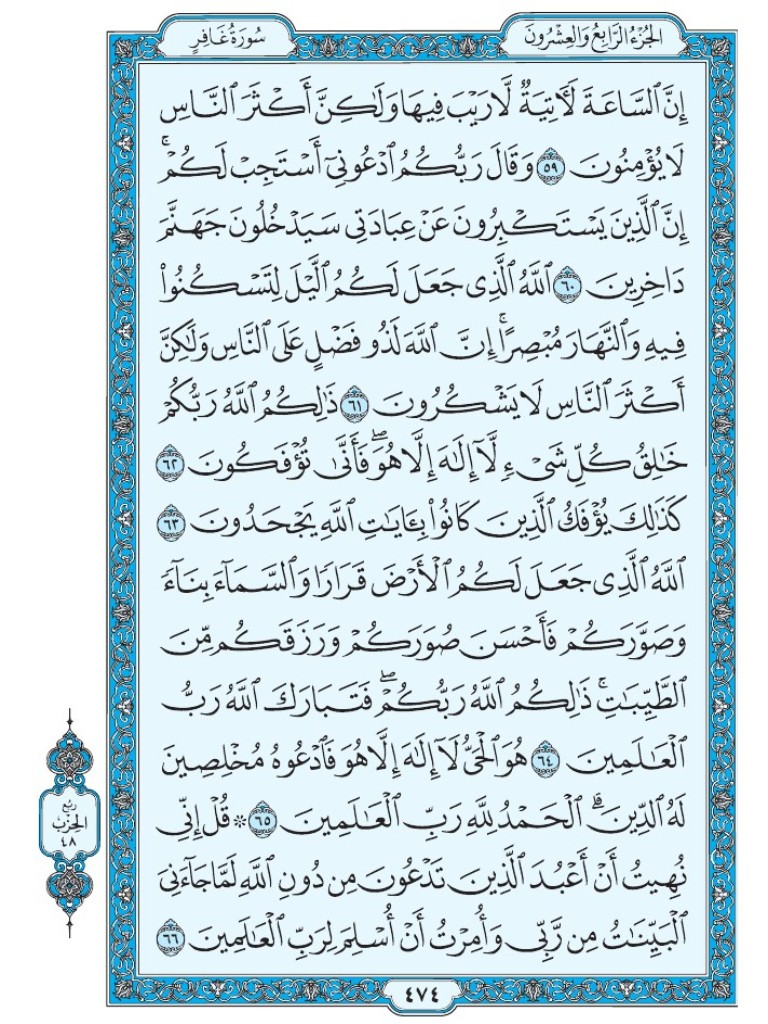 الجُزْءُ الرَّابِعُ وَالعِشْرُونَ
سُورَةُ غَافِرٍ
إِنَّ ٱلسَّاعَةَ لَأٓتِيَةٌ لَّا رَيْبَ فِيهَا وَلَٰكِنَّ أَكْثَرَ ٱلنَّاسِ
لَا يُؤْمِنُونَ ٥٩ وَقَالَ رَبُّكُمُ ٱدْعُونِىٓ أَسْتَجِبْ لَكُمْۚ
إِنَّ ٱلَّذِينَ يَسْتَكْبِرُونَ عَنْ عِبَادَتِى سَيَدْخُلُونَ جَهَنَّمَ
دَاخِرِينَ ٦٠ ٱللَّهُ ٱلَّذِى جَعَلَ لَكُمُ ٱلَّيْلَ لِتَسْكُنُوا۟
فِيهِ وَٱلنَّهَارَ مُبْصِرًاۚ إِنَّ ٱللَّهَ لَذُو فَضْلٍ عَلَى ٱلنَّاسِ وَلَٰكِنَّ
أَكْثَرَ ٱلنَّاسِ لَا يَشْكُرُونَ ٦١ ذَٰلِكُمُ ٱللَّهُ رَبُّكُمْ
خَٰلِقُ كُلِّ شَىْءٍ لَّآ إِلَٰهَ إِلَّا هُوَۖ فَأَنَّىٰ تُؤْفَكُونَ ٦٢
كَذَٰلِكَ يُؤْفَكُ ٱلَّذِينَ كَانُوا۟ بِـَٔايَٰتِ ٱللَّهِ يَجْحَدُونَ ٦٣
ٱللَّهُ ٱلَّذِى جَعَلَ لَكُمُ ٱلْأَرْضَ قَرَارًا وَٱلسَّمَآءَ بِنَآءً
وَصَوَّرَكُمْ فَأَحْسَنَ صُوَرَكُمْ وَرَزَقَكُم مِّنَ
ٱلطَّيِّبَٰتِۚ ذَٰلِكُمُ ٱللَّهُ رَبُّكُمْۖ فَتَبَارَكَ ٱللَّهُ رَبُّ
ٱلْعَٰلَمِينَ ٦٤ هُوَ ٱلْحَىُّ لَآ إِلَٰهَ إِلَّا هُوَ فَٱدْعُوهُ مُخْلِصِينَ
لَهُ ٱلدِّينَۗ ٱلْحَمْدُ لِلَّهِ رَبِّ ٱلْعَٰلَمِينَ ٦٥ ۞ قُلْ إِنِّى
نُهِيتُ أَنْ أَعْبُدَ ٱلَّذِينَ تَدْعُونَ مِن دُونِ ٱللَّهِ لَمَّا جَآءَنِىَ
ٱلْبَيِّنَٰتُ مِن رَّبِّى وَأُمِرْتُ أَنْ أُسْلِمَ لِرَبِّ ٱلْعَٰلَمِينَ ٦٦
ربع
الحزب
٤٨
٤٧٤